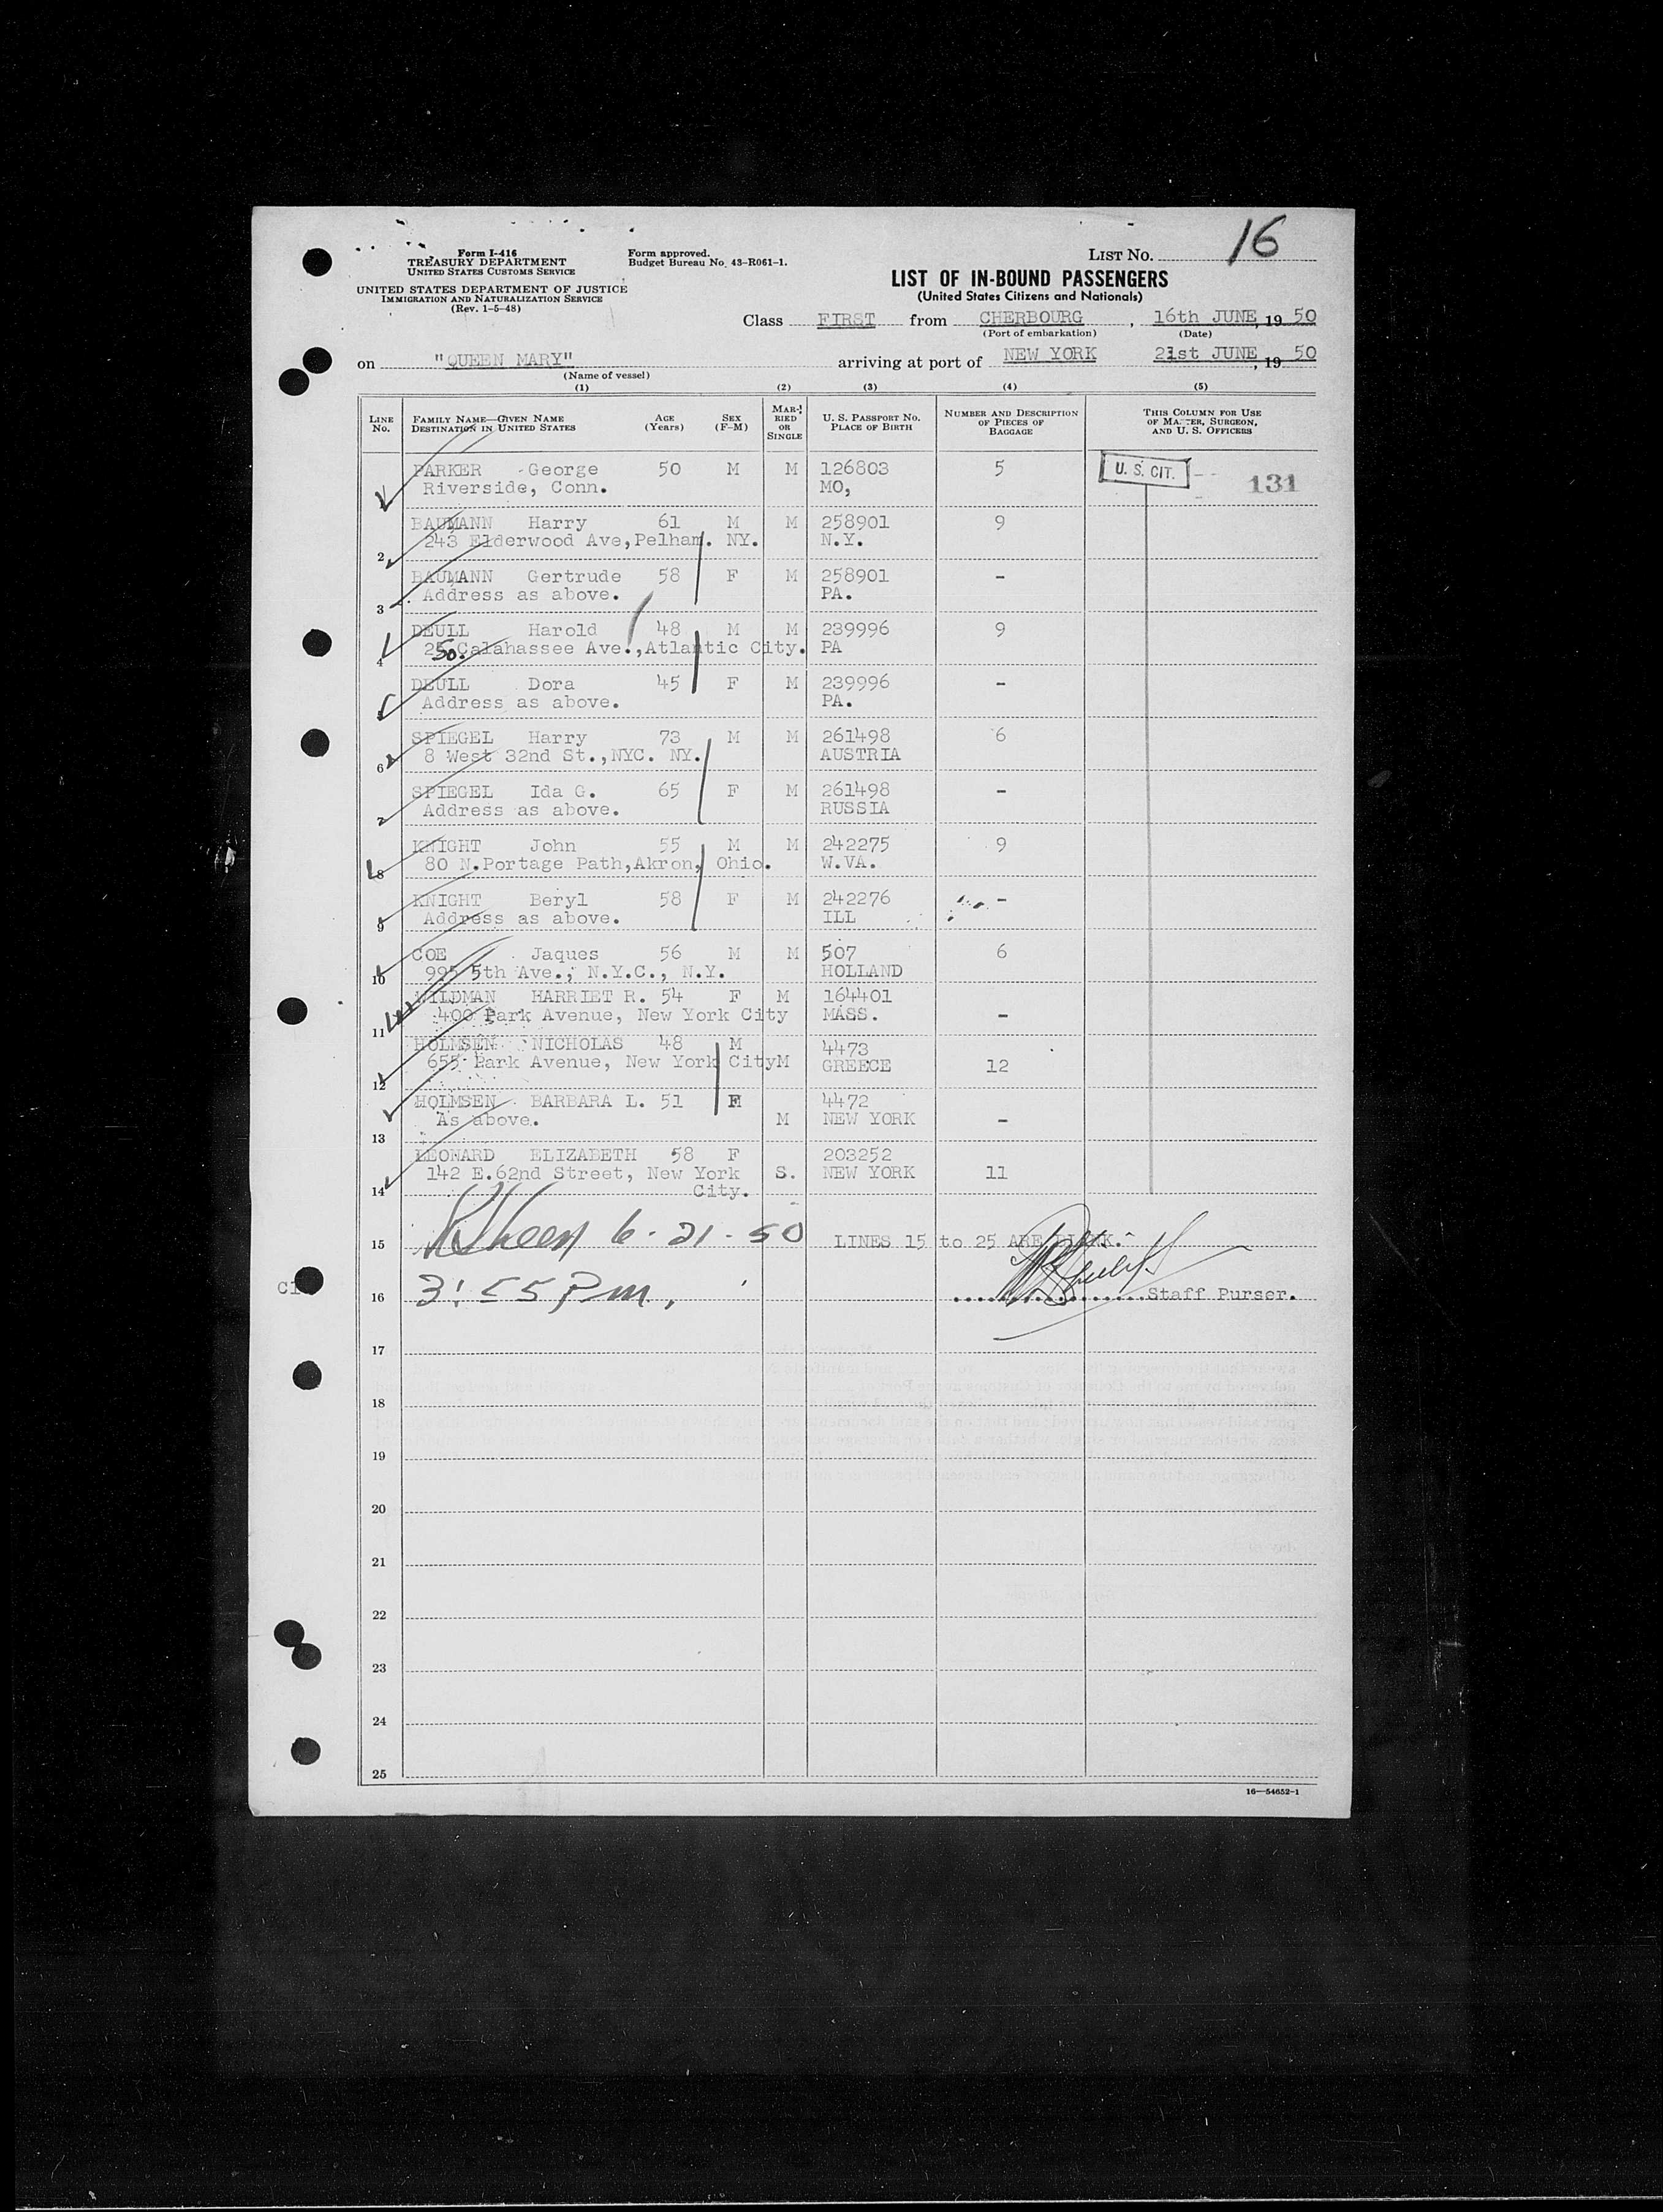 16
Form I-416
TREASURY DEPARTMENT
UNITED STATES CUSTOMS SERVICE
UNITED STATES DEPARTMENT OF JUSTICE
IMMIGRATION AND NATURALIZATION SERVICE
(Rev. 1-5-48)
Form approved.
Budget Bureau No. 43-R061-1.
LIST NO.
LIST OF IN-BOUND PASSENGERS
(United States Citizens and Nationals)
Class FIRST from CHERBOURG, 16th JUNE, 19 50
(Port of embarkation) (Date)
on "QUEEN MARY" arriving at port of NEW YORK 21st JUNE, 19 50
(Name of vessel)
(1) (2) (3) (4) (5)
LINE NO. FAMILY NAME—GIVEN NAME DESTINATION IN UNITED STATES AGE (Years) SEX (F-M) MARRIED OR SINGLE U. S. PASSPORT NO. PLACE OF BIRTH NUMBER AND DESCRIPTION OF PIECES OF BAGGAGE THIS COLUMN FOR USE OF MASTER, SURGEON, AND U. S. OFFICERS
PARKER George 50 M M 126803 5 U. S. CIT. 131
Riverside, Conn. MO,
BAUMANN Harry 61 M M 258901 9
2 243 Elderwood Ave,Pelham. NY. N.Y.
BAUMANN Gertrude 58 F M 258901 -
3 Address as above. PA.
DEULL Harold 48 M M 239996 9
4 25 So. Calahassee Ave.,Atlantic City. PA
DEULL Dora 45 F M 239996 -
Address as above. PA.
SPIEGEL Harry 73 M M 261498 6
6 8 West 32nd St.,NYC. NY. AUSTRIA
SPIEGEL Ida G. 65 F M 261498 -
7 Address as above. RUSSIA
KNIGHT John 55 M M 242275 9
8 80 N.Portage Path,Akron, Ohio. W.VA.
KNIGHT Beryl 58 F M 242276 -
9 Address as above. ILL
COE Jaques 56 M M 507 6
10 995 5th Ave., N.Y.C., N.Y. HOLLAND
WILDMAN HARRIET R. 54 F M 164401
11 400 Park Avenue, New York City MASS. -
HOLMSEN NICHOLAS 48 M 4473
12 655 Park Avenue, New York City M GREECE 12
HOLMSEN BARBARA L. 51 F 4472
As above. M NEW YORK -
13
LEONARD ELIZABETH 58 F 203252
142 E.62nd Street, New York S. NEW YORK 11
14 City.
15 6-21-50 LINES 15 to 25 ARE BLANK.
16 3:55 P.m. Staff Purser.
17
18
19
20
21
22
23
24
25
16—54652-1